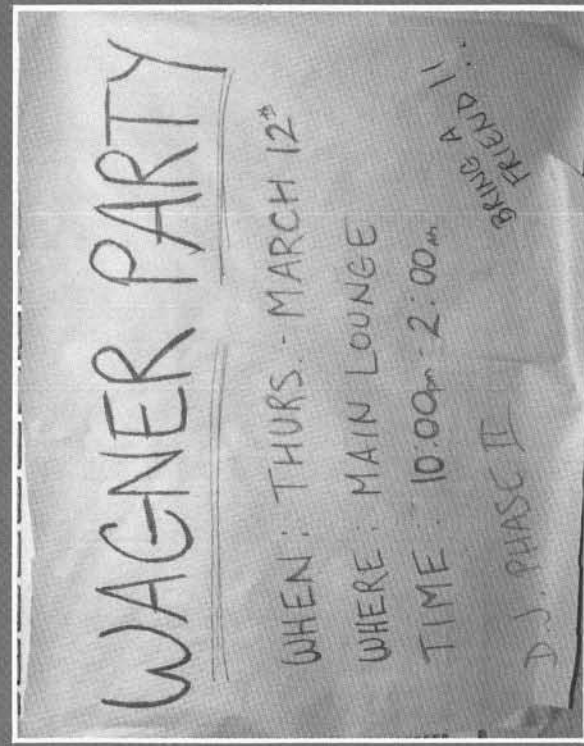 WAGNER PARTY
WHEN: THURS. - MARCH 12th
WHERE: MAIN LOUNGE
TIME: 10:00pm - 2:00am
D.J. PHASE II
BRING A
FRIEND!! ...